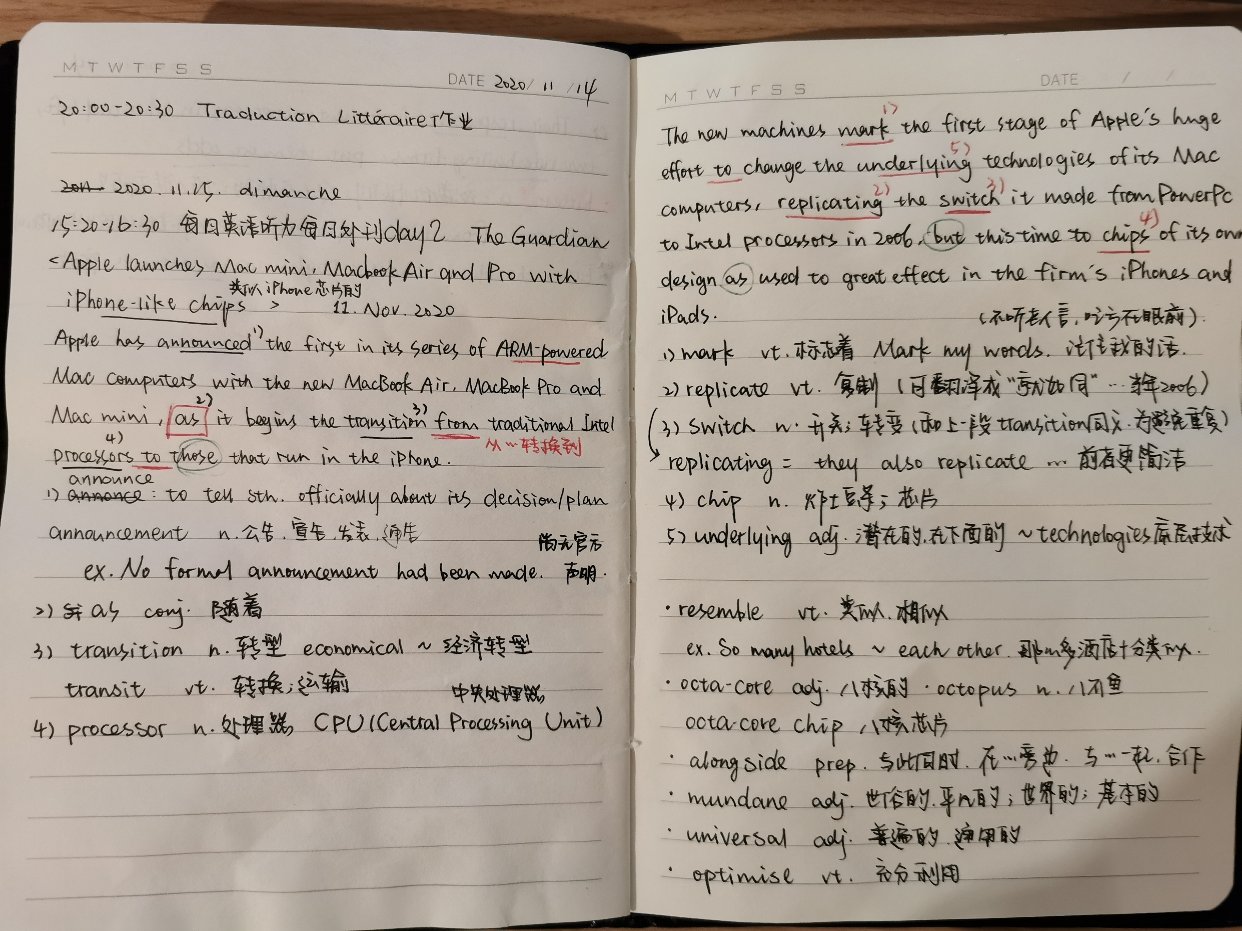 M T W T F S S
DATE 2020/11/14
20:00-20:30 Traduction Littéraire 作业
2011 2020.11.15. dimanche
15:20-16:30 每日英语听力每日外刊day2 The Guardian
<Apple launches Mac mini, Macbook Air and Pro with
类似iPhone芯片的
iPhone-like chips > 11. Nov. 2020
Apple has announced 1) the first in its series of ARM-powered
Mac computers with the new MacBook Air, MacBook Pro and
Mac mini, as 2) it begins the transition 3) from traditional Intel
从…转换到
processors 4) to those that run in the iPhone.
announce
1) annonce: to tell sth. officially about its decision/plan
announcement n. 公告, 宣告, 发表, 通告
尚无官方
ex. No formal announcement had been made. 声明.
2) as conj. 随着
3) transition n. 转型 economical ~ 经济转型
transit vt. 转换; 运输
中央处理器
4) processor n. 处理器 CPU (Central Processing Unit)
M T W T F S S
DATE / /
The new machines mark 1) the first stage of Apple's huge
effort to change the underlying 5) technologies of its Mac
computers, replicating 2) the switch 3) it made from PowerPc
to Intel processors in 2006, but this time to chips 4) of its own
design as used to great effect in the firm's iPhones and
iPads.
(不听老人言,吃亏在眼前).
1) mark vt. 标志着 Mark my words. 记住我的话.
2) replicate vt. 复制 (可翻译成“就如同”… 当年2006)
3) switch n. 开关; 转变 (和上一段transition同义, 为避免重复)
replicating = they also replicate … 前者更简洁
4) chip n. 炸土豆条; 芯片
5) underlying adj. 潜在的, 在下面的 ~ technologies 底层技术
· resemble vt. 类似, 相似
ex. So many hotels ~ each other. 那么多酒店十分类似.
· octa-core adj. 八核的 · octopus n. 八爪鱼
octa-core chip 八核芯片
· alongside prep. 与此同时, 在…旁边. 与…一起, 合作
· mundane adj. 世俗的, 平凡的; 世界的; 基本的
· universal adj. 普遍的, 通用的
· optimise vt. 充分利用